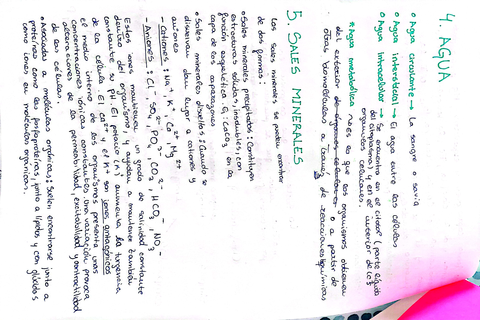 4. AGUA
o Agua circulante → La sangre o savia
o Agua intersticial → El agua entre las células
o Agua intracelular → Se encuentra en el citosol (parte líquida
del citoplasma) y en el interior de los
orgánulos celulares.
Agua metabólica no es que los organismos obtienen
del exterior o a partir de
otras biomoléculas a través de reacciones químicas
5. SALES MINERALES
Las sales minerales se pueden encontrar
de dos formas:
o Sales minerales precipitadas: Constituyen
estructuras sólidas, insolubles, con
función esquelética Ej: CaCO3 en la
capa de los caparazones
o Sales minerales disueltas: Cuando se
disuelven dan lugar a cationes y
aniones
- Cationes: Na+, K+, Ca2+, Mg2+
- Aniones: Cl-, SO4, PO4, CO3, HCO3-, NO3-
Estos iones mantienen un grado de salinidad constante
dentro del organismo y ayudan a mantener también
constante su pH. El potasio (K) aumenta la turgencia
de la célula. El Ca2+ y el K+ son iones antagónicos
el medio interno de los organismos presenta unas
concentraciones iónicas constantes, una variación provoca
alteraciones de la permeabilidad, excitabilidad y contractilidad
de las células.
Asociadas a moléculas orgánicas: Suelen encontrarse junto a
proteínas como las fosfoproteínas, junto a lípidos y con glúcidos
como iones en moléculas orgánicas.